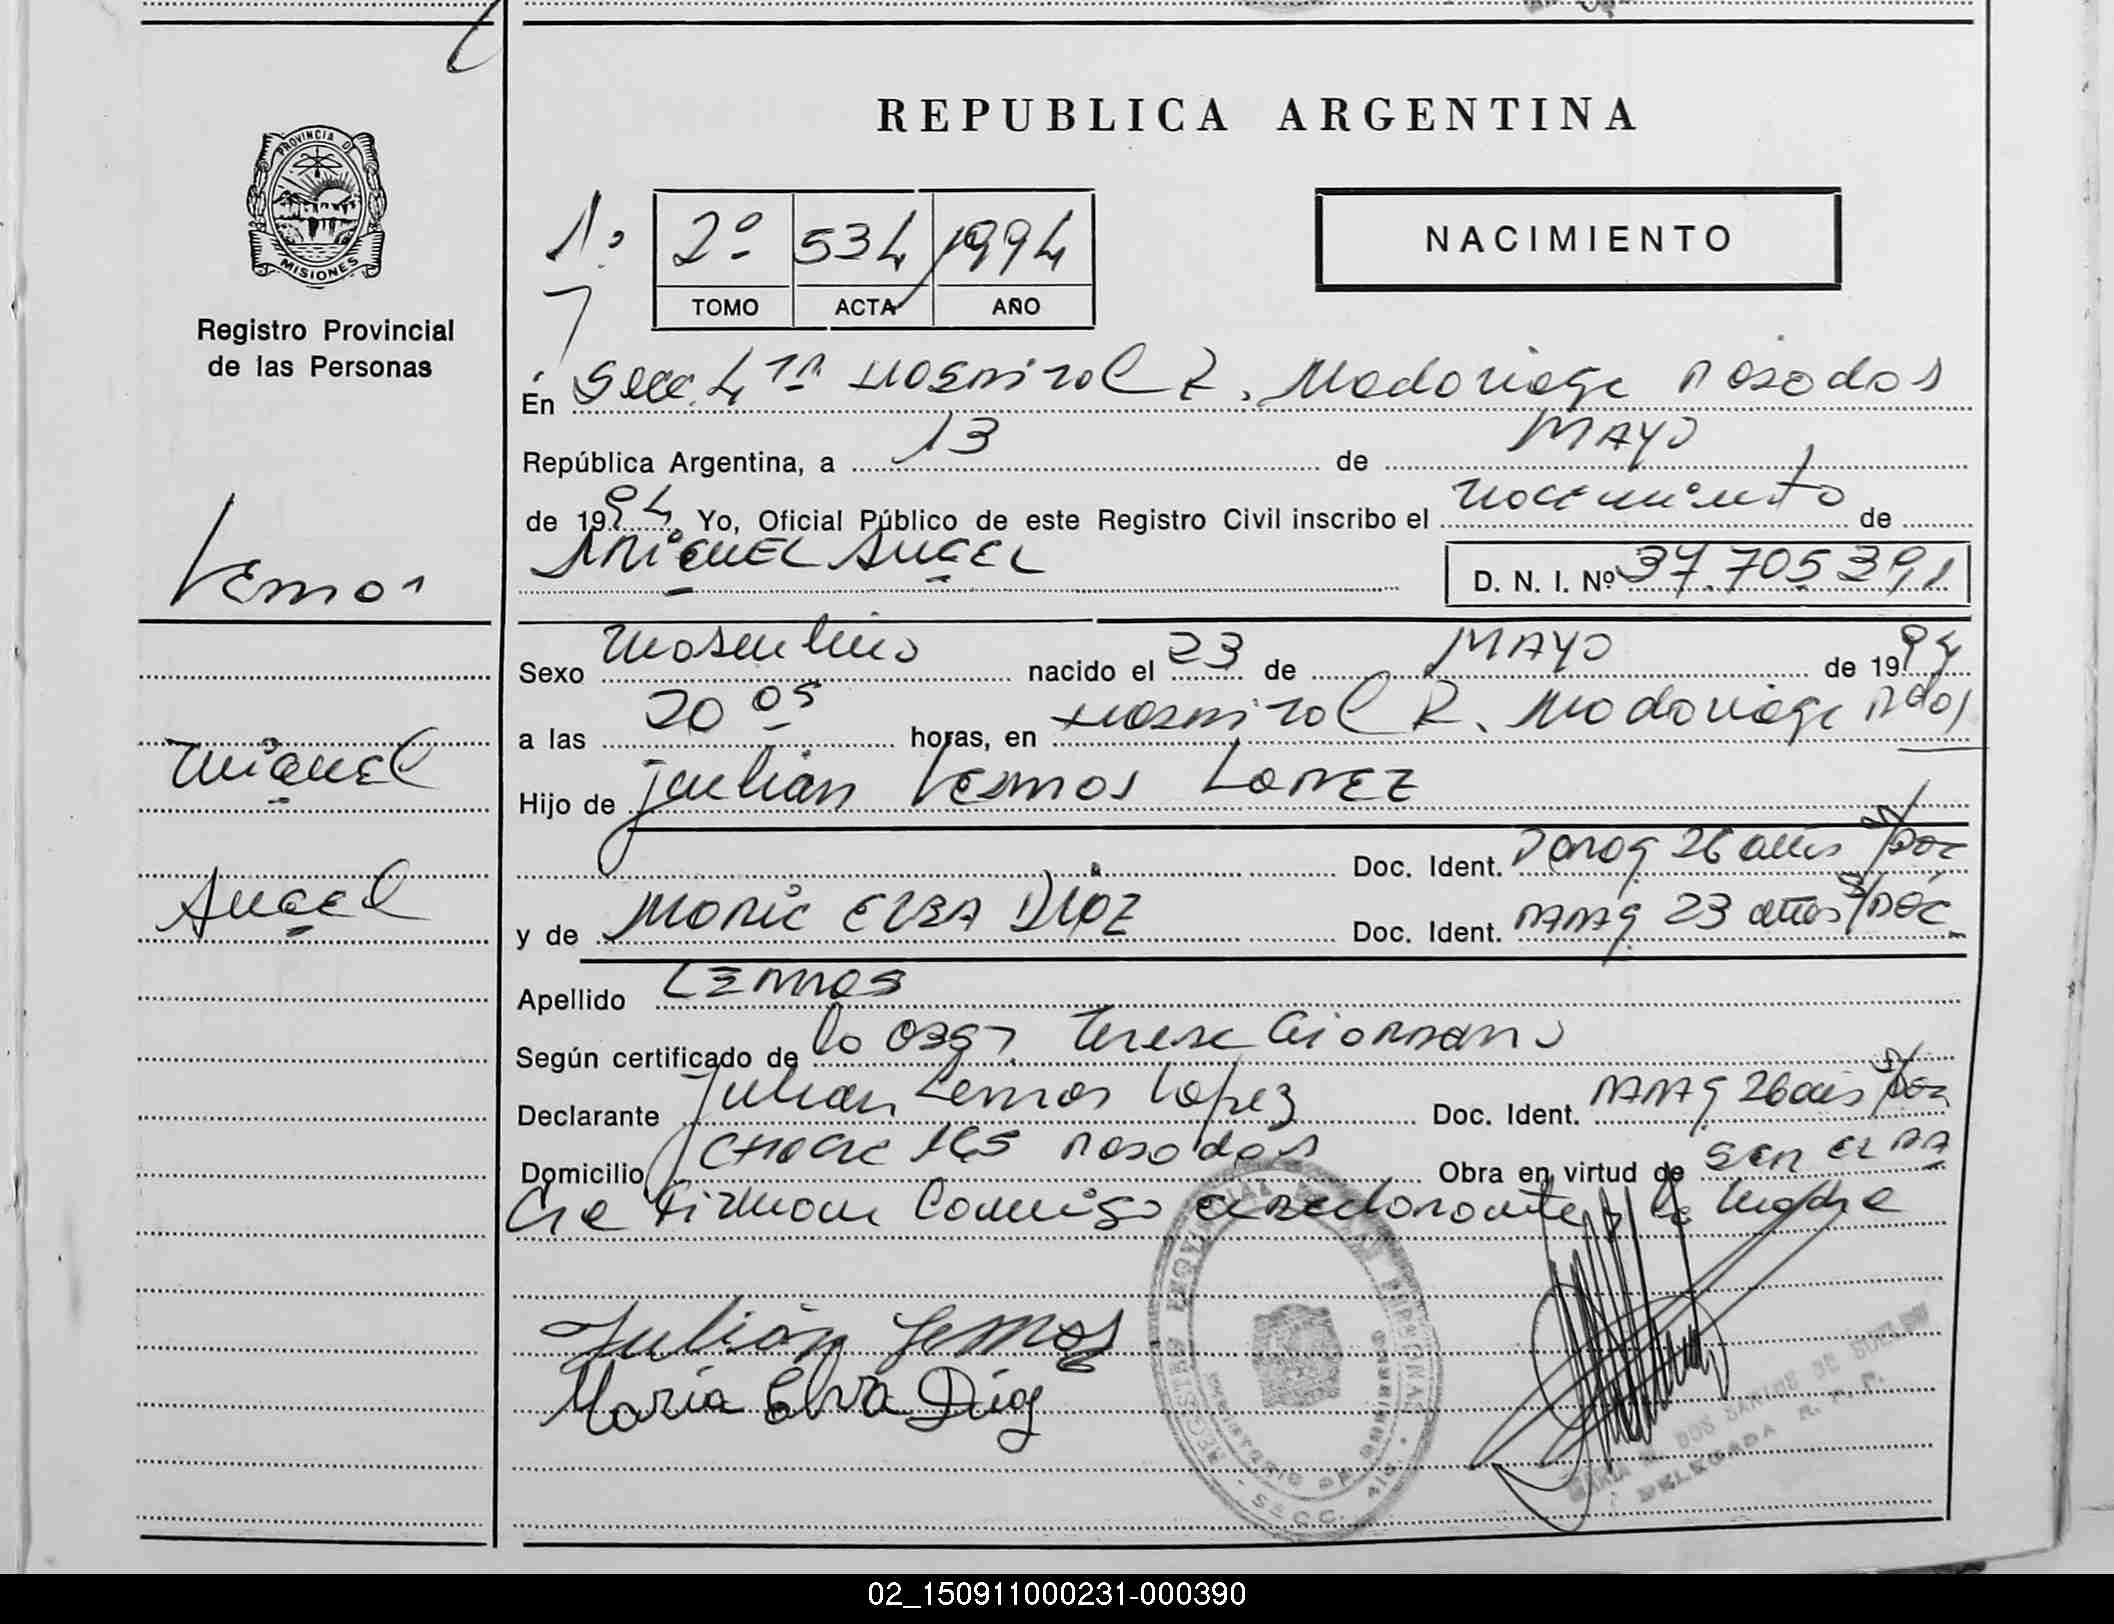 REPUBLICA ARGENTINA
PROVINCIA DE
MISIONES
Registro Provincial
de las Personas
2º 534 1994
TOMO ACTA AÑO
NACIMIENTO
En Secc. 4ta Hospital R. Madariaga Posadas
República Argentina, a 13 de MAYO
de 1994, Yo, Oficial Público de este Registro Civil inscribo el nacimiento de
MIGUEL ANGEL
D. N. I. Nº 37.705.391
Lemos
Miguel
Angel
Sexo Masculino nacido el 23 de MAYO de 1994
a las 20 05 horas, en Hospital R. Madariaga Pdas
Hijo de Julian Lemos Lopez
Doc. Ident. Parag 26 años s/Doc
y de Maria ELBA DIAZ Doc. Ident. PARAG 23 años s/Doc
Apellido LEMOS
Según certificado de la Teresa
Declarante Julian Lemos Lopez Doc. Ident. PARAG 26 años s/Doc
Domicilio 165 Posadas Obra en virtud de SER EL PA
dre Firman Conmigo el declarante y la Madre
Julián Lemos
Maria Elva Diaz
REGISTRO PROVINCIAL DE LAS PERSONAS
DOS SANTOS DE
DELEGADA R. P. P.
02_150911000231-000390